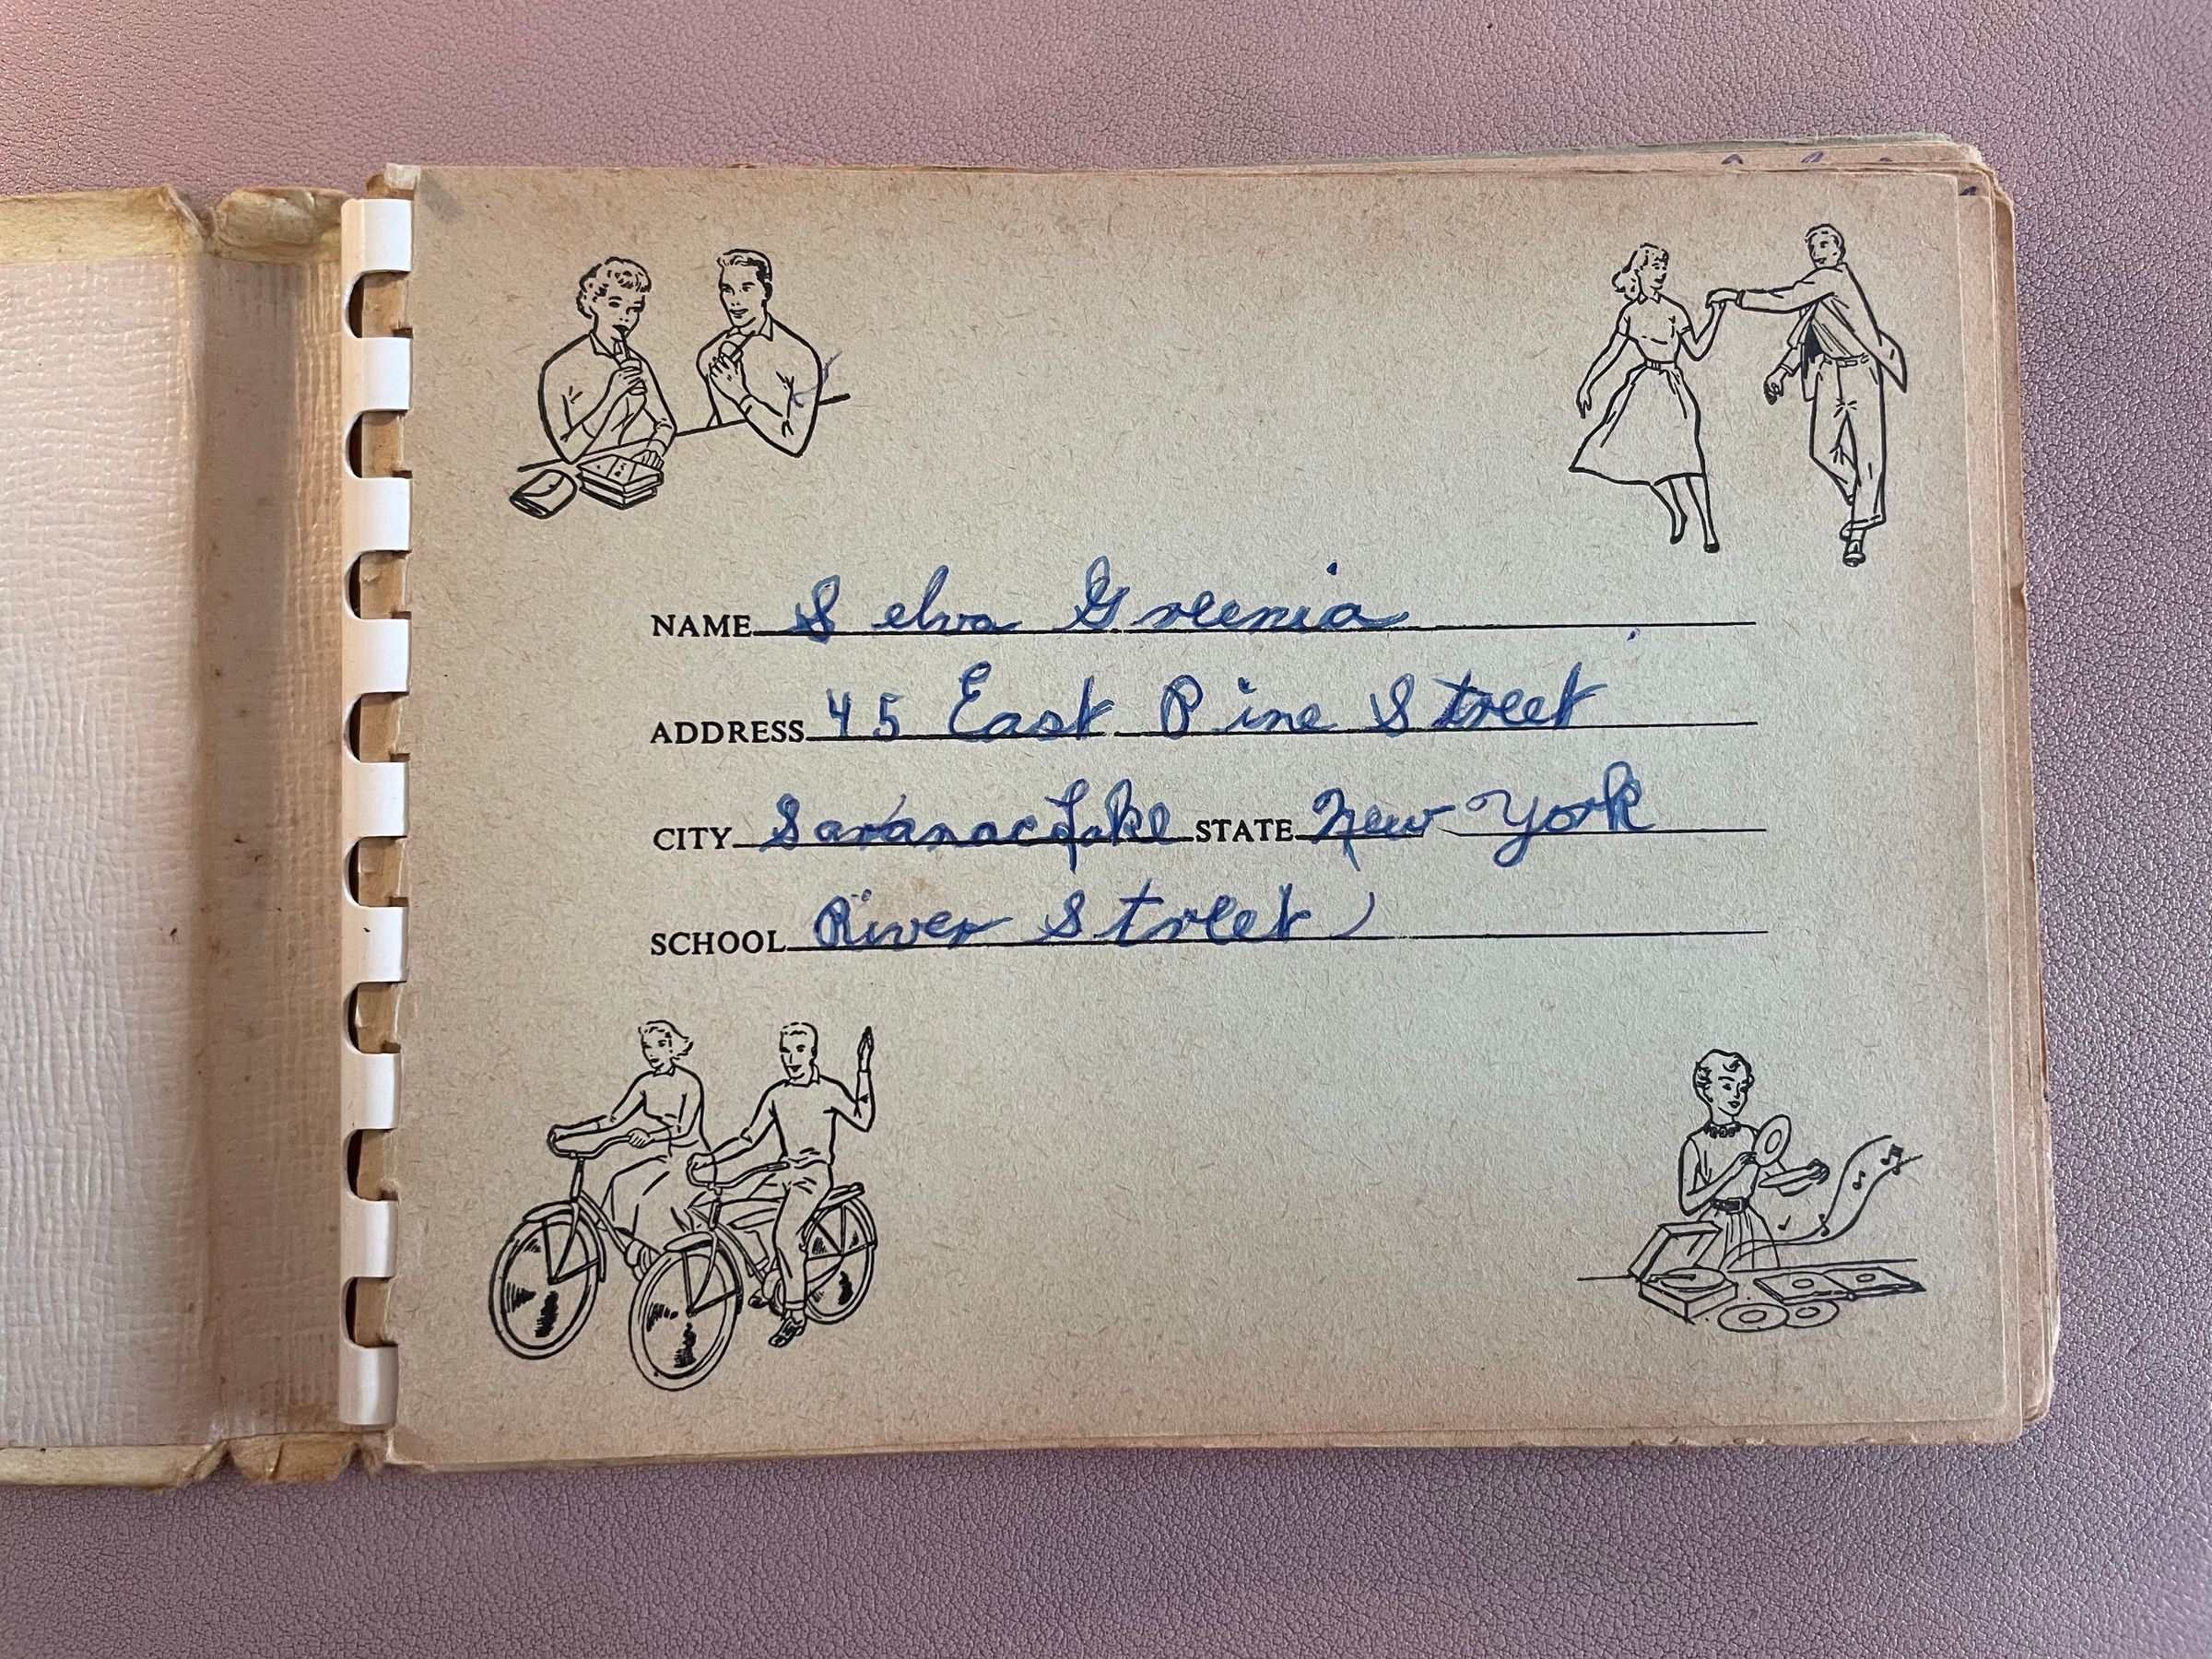 NAME Selva Greenia
ADDRESS 45 East Pine Street
CITY Saranac Lake STATE New York
SCHOOL River Street